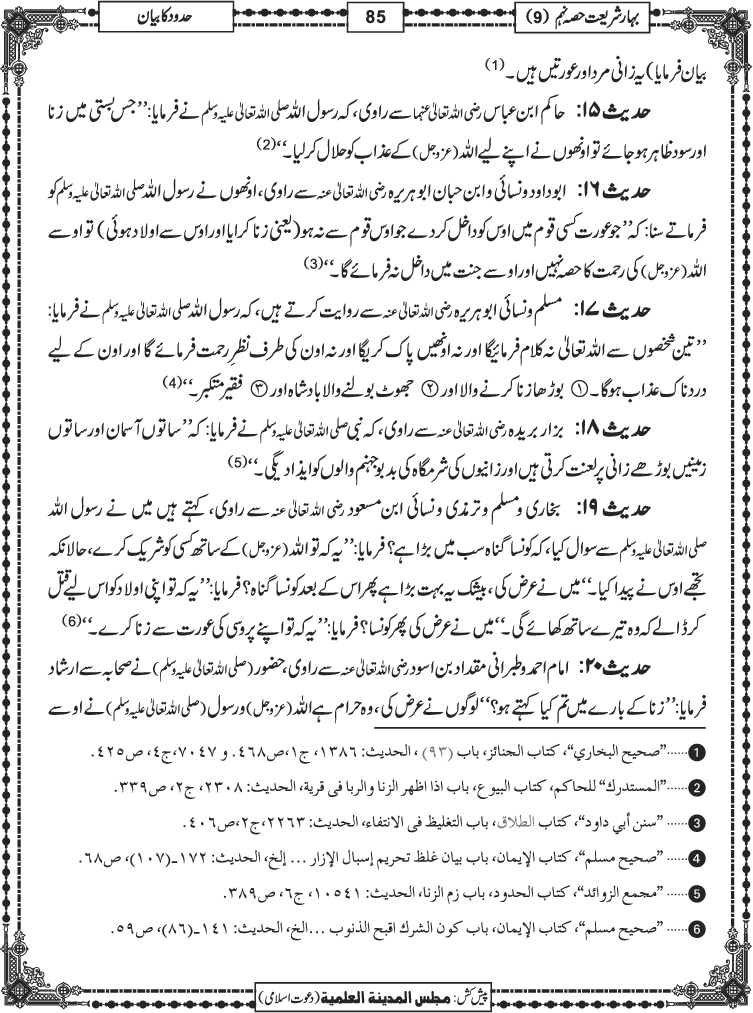 بہارِ شریعت حصہ نہم (9)
85
حدود کا بیان
بیان فرمایا) یہ زانی مرد اور عورتیں ہیں۔ (1)
حدیث ۱۵: حاکم ابن عباس رضی اللہ تعالیٰ عنہما سے راوی، کہ رسول اللہ صلی اللہ تعالیٰ علیہ وسلم نے فرمایا: ’’جس بستی میں زنا
اور سود ظاہر ہو جائے تو اونھوں نے اپنے لیے اللہ (عزوجل) کے عذاب کو حلال کرلیا۔‘‘ (2)
حدیث ۱۶: ابو داود و نسائی و ابن حبان ابو ہریرہ رضی اللہ تعالیٰ عنہ سے راوی، اونھوں نے رسول اللہ صلی اللہ تعالیٰ علیہ وسلم کو
فرماتے سنا: کہ ’’جو عورت کسی قوم میں اوس کو داخل کردے جو اوس قوم سے نہ ہو (یعنی زنا کرایا اور اوس سے اولاد ہوئی) تو اوسے
اللہ (عزوجل) کی رحمت کا حصہ نہیں اور اوسے جنت میں داخل نہ فرمائے گا۔‘‘ (3)
حدیث ۱۷: مسلم و نسائی ابو ہریرہ رضی اللہ تعالیٰ عنہ سے روایت کرتے ہیں، کہ رسول اللہ صلی اللہ تعالیٰ علیہ وسلم نے فرمایا:
’’تین شخصوں سے اللہ تعالیٰ نہ کلام فرمائیگا اور نہ اونھیں پاک کریگا اور نہ اون کی طرف نظرِ رحمت فرمائے گا اور اون کے لیے
دردناک عذاب ہوگا۔ ① بوڑھا زنا کرنے والا اور ② جھوٹ بولنے والا بادشاہ اور ③ فقیر متکبر۔‘‘ (4)
حدیث ۱۸: بزار بریدہ رضی اللہ تعالیٰ عنہ سے راوی، کہ نبی صلی اللہ تعالیٰ علیہ وسلم نے فرمایا: کہ ’’ساتوں آسمان اور ساتوں
زمینیں بوڑھے زانی پر لعنت کرتی ہیں اور زانیوں کی شرمگاہ کی بدبو جہنم والوں کو ایذا دیگی۔‘‘ (5)
حدیث ۱۹: بخاری و مسلم و ترمذی و نسائی ابن مسعود رضی اللہ تعالیٰ عنہ سے راوی، کہتے ہیں میں نے رسول اللہ
صلی اللہ تعالیٰ علیہ وسلم سے سوال کیا، کہ کونسا گناہ سب میں بڑا ہے؟ فرمایا: ’’یہ کہ تو اللہ (عزوجل) کے ساتھ کسی کو شریک کرے، حالانکہ
تجھے اوس نے پیدا کیا۔‘‘ میں نے عرض کی، بیشک یہ بہت بڑا ہے پھر اس کے بعد کونسا گناہ؟ فرمایا: ’’یہ کہ تو اپنی اولاد کو اس لیے قتل
کر ڈالے کہ وہ تیرے ساتھ کھائے گی۔‘‘ میں نے عرض کی پھر کونسا؟ فرمایا: ’’یہ کہ تو اپنے پروسی کی عورت سے زنا کرے۔‘‘ (6)
حدیث ۲۰: امام احمد و طبرانی مقداد بن اسود رضی اللہ تعالیٰ عنہ سے راوی، حضور (صلی اللہ تعالیٰ علیہ وسلم) نے صحابہ سے ارشاد
فرمایا: ’’زنا کے بارے میں تم کیا کہتے ہو؟‘‘ لوگوں نے عرض کی، وہ حرام ہے اللہ (عزوجل) و رسول (صلی اللہ تعالیٰ علیہ وسلم) نے اوسے
1 ......”صحیح البخاري“، کتاب الجنائز، باب (۹۳)، الحدیث: ۱۳۸۶، ج۱، ص۴۶۸. و ۷۰۴۷، ج۴، ص۴۲۵.
2 ......”المستدرك“ للحاکم، کتاب البیوع، باب اذا اظهر الزنا والربا فی قرية، الحدیث: ۲۳۰۸، ج۲، ص۳۳۹.
3 ...... ”سنن أبي داود“، کتاب الطلاق، باب التغلیظ فی الانتفاء، الحدیث: ۲۲۶۳، ج۲، ص۴۰۶.
4 ...... ”صحیح مسلم“، کتاب الإیمان، باب بیان غلظ تحریم إسبال الإزار ... إلخ، الحدیث: ۱۷۲۔(۱۰۷)، ص۶۸.
5 ...... ”مجمع الزوائد“، کتاب الحدود، باب زم الزنا، الحدیث: ۱۰۵۴۱، ج۶، ص۳۸۹.
6 ...... ”صحیح مسلم“، کتاب الإیمان، باب کون الشرك اقبح الذنوب ...الخ، الحدیث: ۱۴۱۔(۸۶)، ص۵۹.
پیش کش: مجلس المدینة العلمیة (دعوت اسلامی)